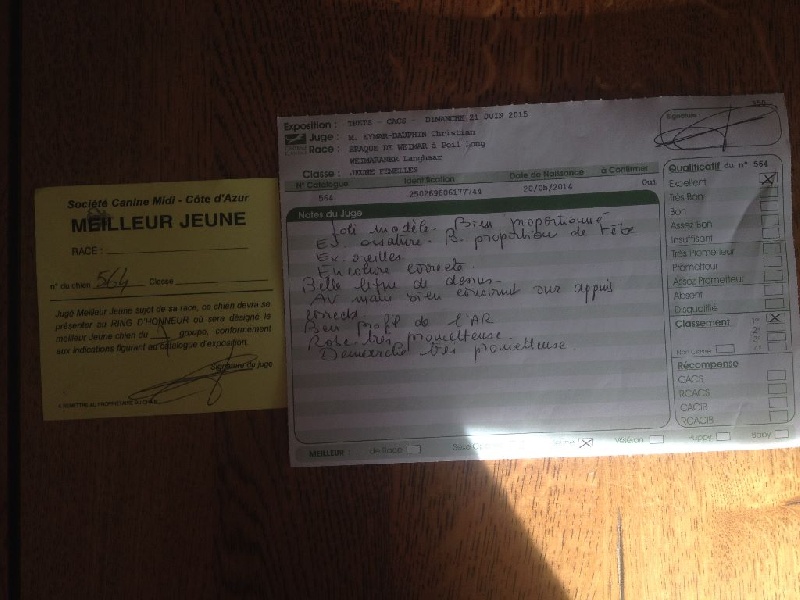 Société Canine Midi - Côte d'Azur
MEILLEUR JEUNE
RACE :
n° du chien 564 Classe
Jugé Meilleur Jeune sujet de sa race, ce chien devra se
présenter au RING D'HONNEUR où sera désigné le
meilleur Jeune chien du groupe, conformément
aux indications figurant au catalogue d'exposition.
Signature du juge
Exposition : - CACS - DIMANCHE 21 JUIN 2015
Juge : M. EYMAR-DAUPHIN Christian
Race : BRAQUE DE WEIMAR à Poil Long
WEIMARANER Langhaar
Classe : JEUNE FEMELLES
N° Catalogue Identification Date de Naissance à Confirmer
564 20/05/2014 Oui
Notes du Juge
Joli modèle. Bien proportionné
Ex. ossature. B. proportion de tête
Ex. oreilles
Encolure correcte
Belle ligne de dessus
Av main bien construit sur appuis
corrects
Bon profil de l'AR
Robe très prometteuse
Démarche très prometteuse
MEILLEUR : de Race Jeune Vétéran Puppy Baby
Signature
Qualificatif du n° 564
Excellent
Très Bon
Bon
Assez Bon
Insuffisant
Très Prometteur
Prometteur
Assez Prometteur
Absent
Disqualifié
Classement
Non Classé
Récompense
CACS
RCACS
CACIB
RCACIB